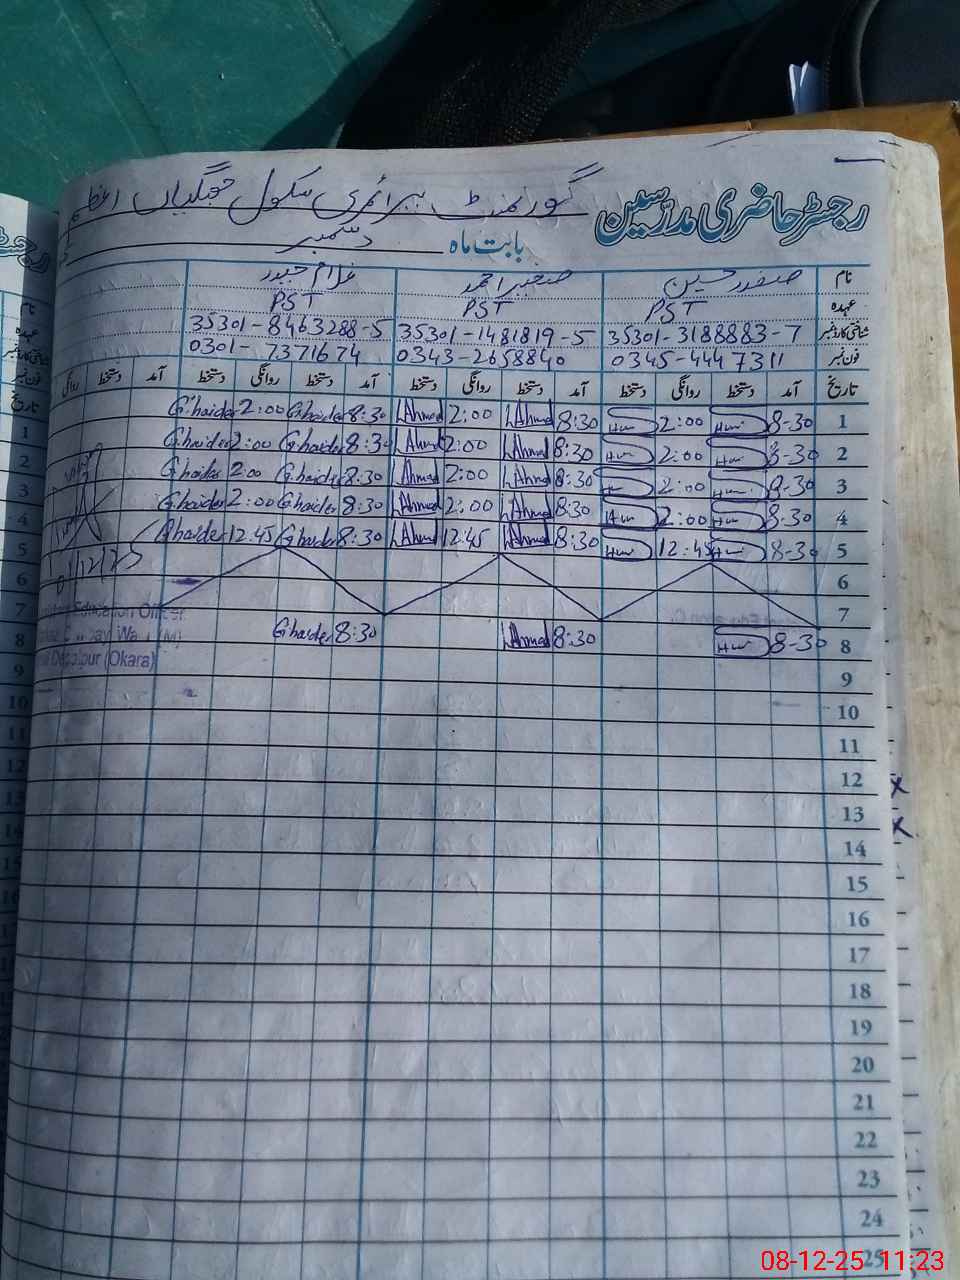 رجسٹر حاضری مدرسین گورنمنٹ پرائمری سکول جھگیاں اعظم
بابت ماہ دسمبر
نام صفدر حسین صغیر احمد غلام حیدر
عہدہ PST PST PST
شناختی کارڈ نمبر 35301-3188883-7 35301-1481819-5 35301-8463288-5
فون نمبر 0345-4447311 0343-2658840 0301-7371674
تاریخ آمد دستخط روانگی دستخط آمد دستخط روانگی دستخط آمد دستخط روانگی دستخط آمد دستخط روانگی
1 8-30 2:00 8:30 LAhmed 2:00 LAhmed 8:30 Ghaider 2:00 Ghaider
2 8-30 2:00 8:30 LAhmed 2:00 LAhmed 8:30 Ghaider 2:00 Ghaider
3 8-30 2:00 8:30 LAhmed 2:00 LAhmed 8:30 Ghaider 2:00 Ghaider
4 8-30 2:00 8:30 LAhmed 2:00 LAhmed 8:30 Ghaider 2:00 Ghaider
5 8-30 12:45 8:30 LAhmed 12:45 LAhmed 8:30 Ghaider 12:45 Ghaider
6
7
8 8-30 8:30 LAhmed 8:30 Ghaider
Education Officer
Depalpur (Okara)
9
10
11
12
13
14
15
16
17
18
19
20
21
22
23
24
25
08-12-25 11:23